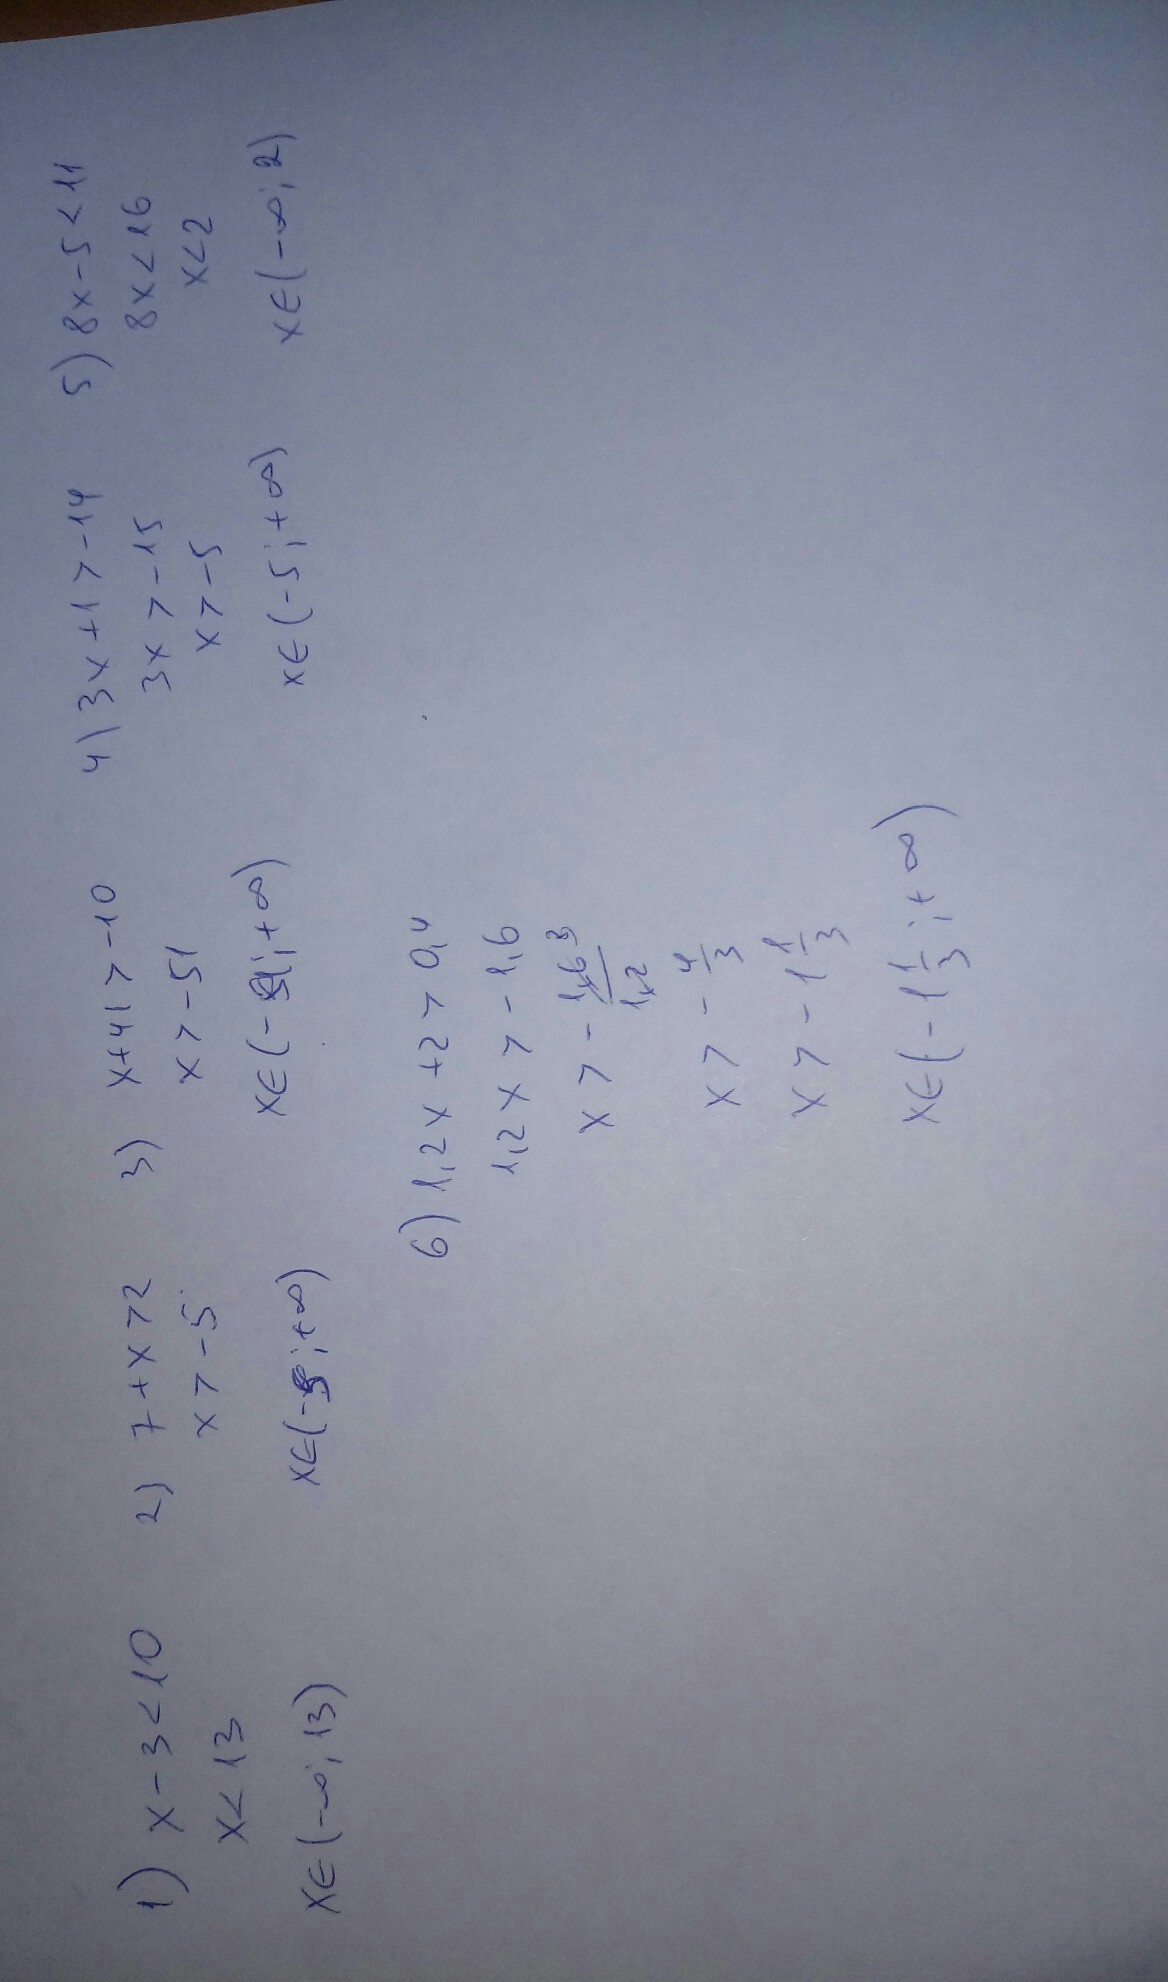 1) x - 3 < 10
x < 13
x ∈ (-∞; 13)
2) 7 + x > 2
x > -5
x ∈ (-5; +∞)
3) x + 41 > -10
x > -51
x ∈ (-51; +∞)
4) 3x + 1 > -14
3x > -15
x > -5
x ∈ (-5; +∞)
5) 8x - 5 < 11
8x < 16
x < 2
x ∈ (-∞; 2)
6) 1,2x + 2 > 0,4
1,2x > -1,6
x > -
x > - 4/3
x > - 1 1/3
x ∈ (- 1 1/3; +∞)